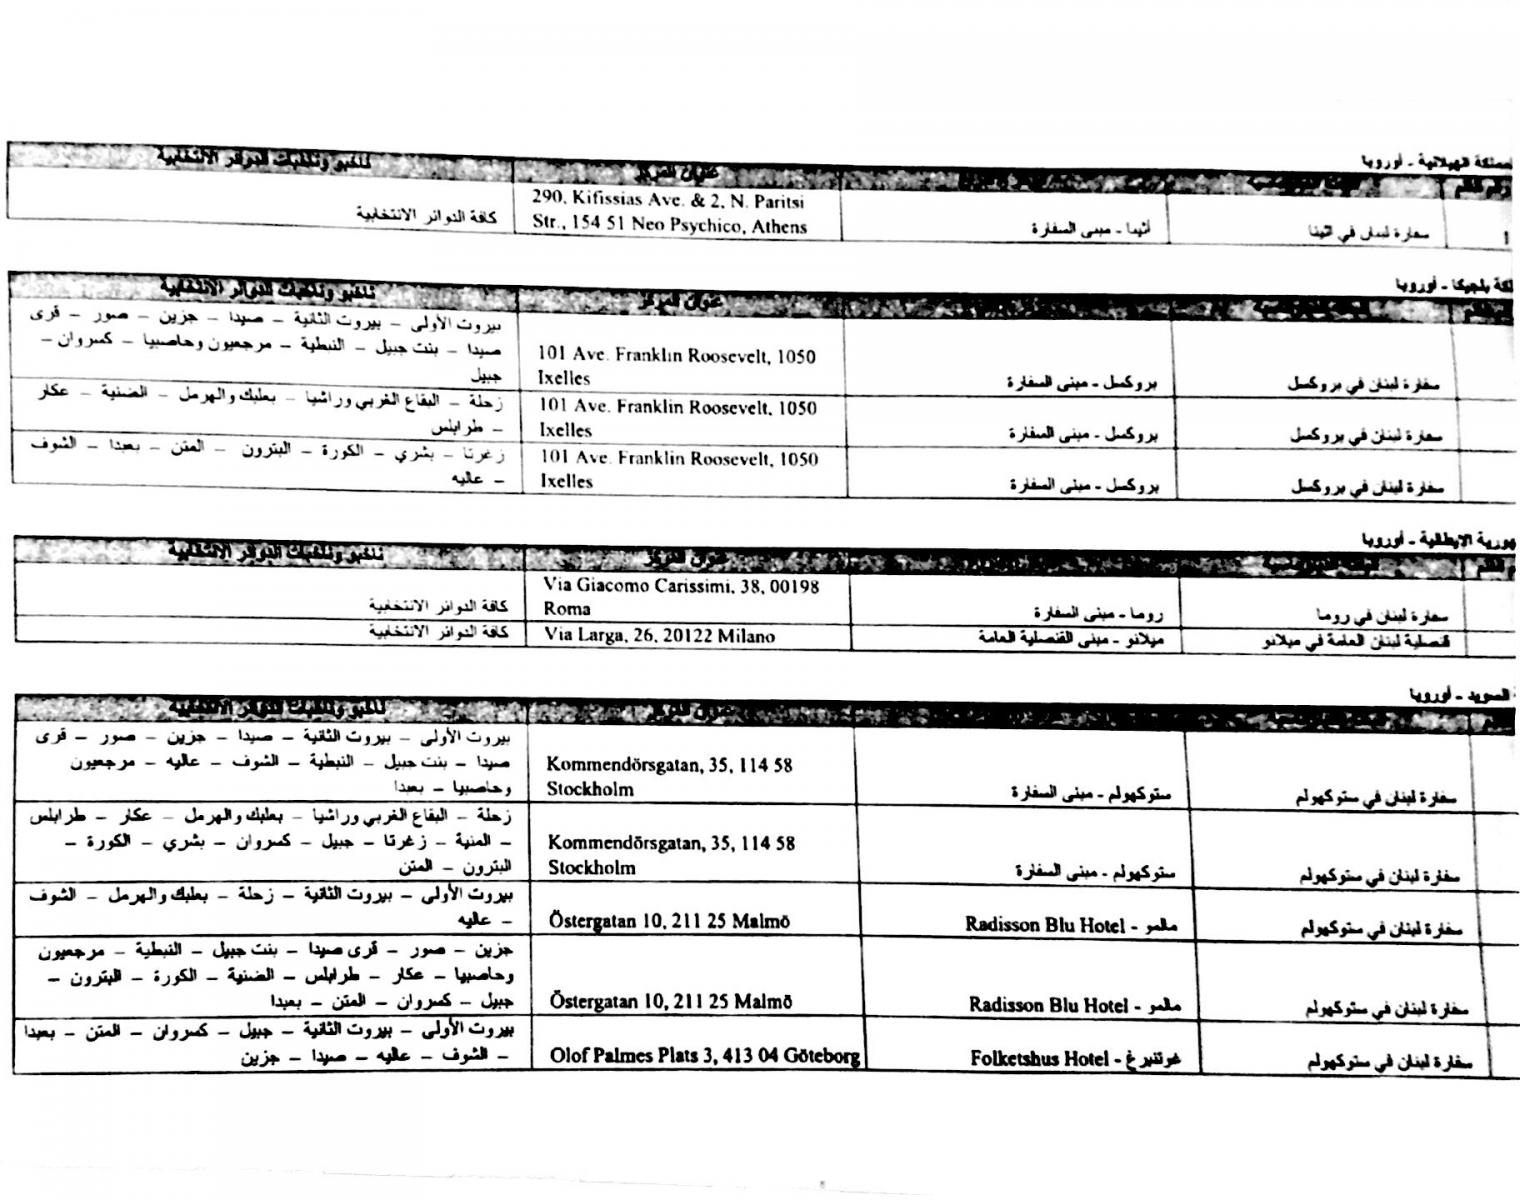 الهيلانية - أوروبا
عنوان المركز
ناخبو وناخبات الدوائر الانتخابية
1
سفارة لبنان في اثينا
أثينا - مبنى السفارة
290, Kifissias Ave. & 2, N. Paritsi
Str., 154 51 Neo Psychico, Athens
كافة الدوائر الانتخابية
بلجيكا - أوروبا
عنوان المركز
ناخبو وناخبات الدوائر الانتخابية
سفارة لبنان في بروكسل
بروكسل - مبنى السفارة
101 Ave. Franklin Roosevelt, 1050
Ixelles
بيروت الأولى – بيروت الثانية – صيدا – جزين – صور – قرى
صيدا – بنت جبيل – النبطية – مرجعيون وحاصبيا – كسروان –
جبيل
سفارة لبنان في بروكسل
بروكسل - مبنى السفارة
101 Ave. Franklin Roosevelt, 1050
Ixelles
زحلة – البقاع الغربي وراشيا – بعلبك والهرمل – الضنية – عكار
– طرابلس
سفارة لبنان في بروكسل
بروكسل - مبنى السفارة
101 Ave. Franklin Roosevelt, 1050
Ixelles
زغرتا – بشري – الكورة – البترون – المتن – بعبدا – الشوف
– عاليه
الايطالية - أوروبا
عنوان المركز
ناخبو وناخبات الدوائر الانتخابية
سفارة لبنان في روما
روما - مبنى السفارة
Via Giacomo Carissimi, 38, 00198
Roma
كافة الدوائر الانتخابية
قنصلية لبنان العامة في ميلانو
ميلانو - مبنى القنصلية العامة
Via Larga, 26, 20122 Milano
كافة الدوائر الانتخابية
السويد - أوروبا
عنوان المركز
ناخبو وناخبات الدوائر الانتخابية
سفارة لبنان في ستوكهولم
ستوكهولم - مبنى السفارة
Kommendörsgatan, 35, 114 58
Stockholm
بيروت الأولى – بيروت الثانية – صيدا – جزين – صور – قرى
صيدا – بنت جبيل – النبطية – الشوف – عاليه – مرجعيون
وحاصبيا – بعبدا
سفارة لبنان في ستوكهولم
ستوكهولم - مبنى السفارة
Kommendörsgatan, 35, 114 58
Stockholm
زحلة – البقاع الغربي وراشيا – بعلبك والهرمل – عكار – طرابلس
– المنية – زغرتا – جبيل – كسروان – بشري – الكورة –
البترون – المتن
سفارة لبنان في ستوكهولم
مالمو - Radisson Blu Hotel
Östergatan 10, 211 25 Malmö
بيروت الأولى – بيروت الثانية – زحلة – بعلبك والهرمل – الشوف
– عاليه
سفارة لبنان في ستوكهولم
مالمو - Radisson Blu Hotel
Östergatan 10, 211 25 Malmö
جزين – صور – قرى صيدا – بنت جبيل – النبطية – مرجعيون
وحاصبيا – عكار – طرابلس – الضنية – الكورة – البترون –
جبيل – كسروان – المتن – بعبدا
سفارة لبنان في ستوكهولم
غوتنبرغ - Folketshus Hotel
Olof Palmes Plats 3, 413 04 Göteborg
بيروت الأولى – بيروت الثانية – جبيل – كسروان – المتن – بعبدا
– الشوف – عاليه – صيدا – جزين